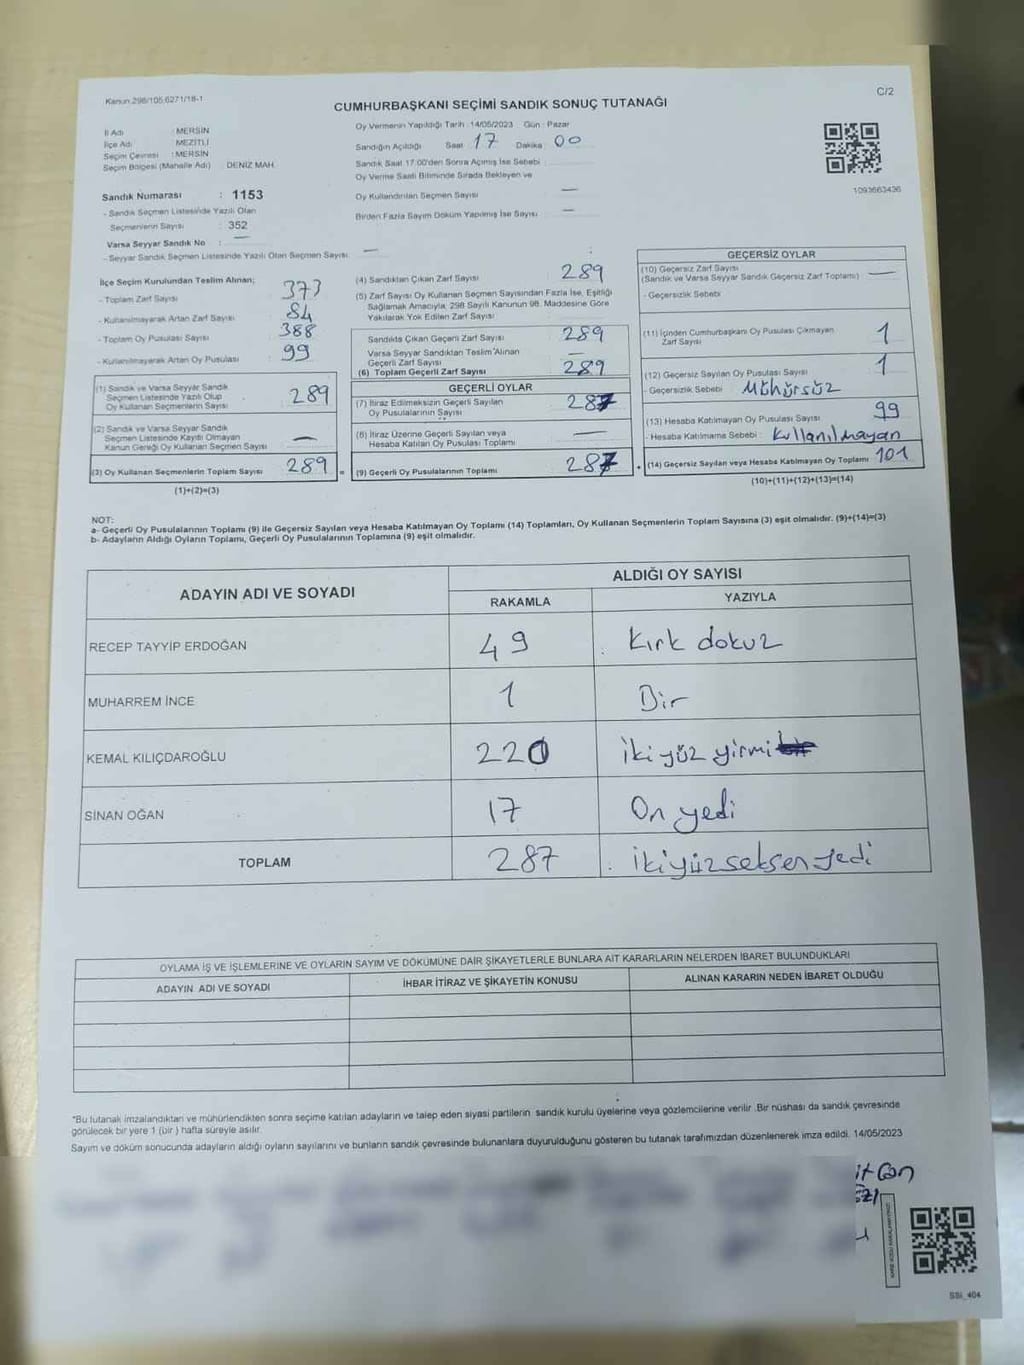 Kanun:298/105,6271/18-1
C/2
CUMHURBAŞKANI SEÇİMİ SANDIK SONUÇ TUTANAĞI
İl Adı : MERSİN
İlçe Adı : MEZİTLİ
Seçim Çevresi : MERSİN
Seçim Bölgesi (Mahalle Adı) : DENİZ MAH.
Sandık Numarası : 1153
- Sandık Seçmen Listesinde Yazılı Olan
Seçmenlerin Sayısı : 352
Varsa Seyyar Sandık No : —
- Seyyar Sandık Seçmen Listesinde Yazılı Olan Seçmen Sayısı: —
Oy Vermenin Yapıldığı Tarih : 14/05/2023 Gün : Pazar
Sandığın Açıldığı Saat : 17 Dakika : 00
Sandık Saat 17:00'den Sonra Açılmış İse Sebebi :
Oy Verme Saati Bitiminde Sırada Bekleyen ve
Oy Kullandırılan Seçmen Sayısı —
Birden Fazla Sayım Döküm Yapılmış İse Sayısı —
1093663436
İlçe Seçim Kurulundan Teslim Alınan;
- Toplam Zarf Sayısı 373
- Kullanılmayarak Artan Zarf Sayısı 84
- Toplam Oy Pusulası Sayısı 388
- Kullanılmayarak Artan Oy Pusulası 99
(1) Sandık ve Varsa Seyyar Sandık
Seçmen Listesinde Yazılı Olup
Oy Kullanan Seçmenlerin Sayısı 289
(2) Sandık ve Varsa Seyyar Sandık
Seçmen Listesinde Kayıtlı Olmayan
Kanun Gereği Oy Kullanan Seçmen Sayısı —
(3) Oy Kullanan Seçmenlerin Toplam Sayısı 289 =
(1)+(2)=(3)
(4) Sandıktan Çıkan Zarf Sayısı 289
(5) Zarf Sayısı Oy Kullanan Seçmen Sayısından Fazla İse, Eşitliği
Sağlamak Amacıyla 298 Sayılı Kanunun 98. Maddesine Göre
Yakılarak Yok Edilen Zarf Sayısı
Sandıkta Çıkan Geçerli Zarf Sayısı 289
Varsa Seyyar Sandıktan Teslim Alınan
Geçerli Zarf Sayısı —
(6) Toplam Geçerli Zarf Sayısı 289
GEÇERLİ OYLAR
(7) İtiraz Edilmeksizin Geçerli Sayılan
Oy Pusulalarının Sayısı 287
(8) İtiraz Üzerine Geçerli Sayılan veya
Hesaba Katılan Oy Pusulası Toplamı —
(9) Geçerli Oy Pusulalarının Toplamı 287 +
GEÇERSİZ OYLAR
(10) Geçersiz Zarf Sayısı
(Sandık ve Varsa Seyyar Sandık Geçersiz Zarf Toplamı) —
- Geçersizlik Sebebi :
(11) İçinden Cumhurbaşkanı Oy Pusulası Çıkmayan
Zarf Sayısı 1
(12) Geçersiz Sayılan Oy Pusulası Sayısı 1
- Geçersizlik Sebebi : Mühürsüz
(13) Hesaba Katılmayan Oy Pusulası Sayısı 99
- Hesaba Katılmama Sebebi : Kullanılmayan
(14) Geçersiz Sayılan veya Hesaba Katılmayan Oy Toplamı 101
(10)+(11)+(12)+(13)=(14)
NOT:
a- Geçerli Oy Pusulalarının Toplamı (9) ile Geçersiz Sayılan veya Hesaba Katılmayan Oy Toplamı (14) Toplamları, Oy Kullanan Seçmenlerin Toplam Sayısına (3) eşit olmalıdır. (9)+(14)=(3)
b- Adayların Aldığı Oyların Toplamı, Geçerli Oy Pusulalarının Toplamına (9) eşit olmalıdır.
ADAYIN ADI VE SOYADI
ALDIĞI OY SAYISI
RAKAMLA YAZIYLA
RECEP TAYYİP ERDOĞAN 49 Kırk dokuz
MUHARREM İNCE 1 Bir
KEMAL KILIÇDAROĞLU 220 İki yüz yirmi
SİNAN OĞAN 17 On yedi
TOPLAM 287 İkiyüzseksen yedi
OYLAMA İŞ VE İŞLEMLERİNE VE OYLARIN SAYIM VE DÖKÜMÜNE DAİR ŞİKAYETLERLE BUNLARA AİT KARARLARIN NELERDEN İBARET BULUNDUKLARI
ADAYIN ADI VE SOYADI İHBAR İTİRAZ VE ŞİKAYETİN KONUSU ALINAN KARARIN NEDEN İBARET OLDUĞU
*Bu tutanak imzalandıktan ve mühürlendikten sonra seçime katılan adayların ve talep eden siyasi partilerin sandık kurulu üyelerine veya gözlemcilerine verilir. Bir nüshası da sandık çevresinde
görülecek bir yere 1 (bir) hafta süreyle asılır.
Sayım ve döküm sonucunda adayların aldığı oyların sayılarını ve bunların sandık çevresinde bulunanlara duyurulduğunu gösteren bu tutanak tarafımızdan düzenlenerek imza edildi. 14/05/2023
SSİ_404